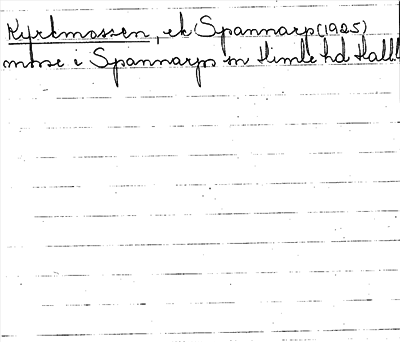 Kyrkmossen, ek Spannarp (1925)
mosse i Spannarps sn Himle hd Hall